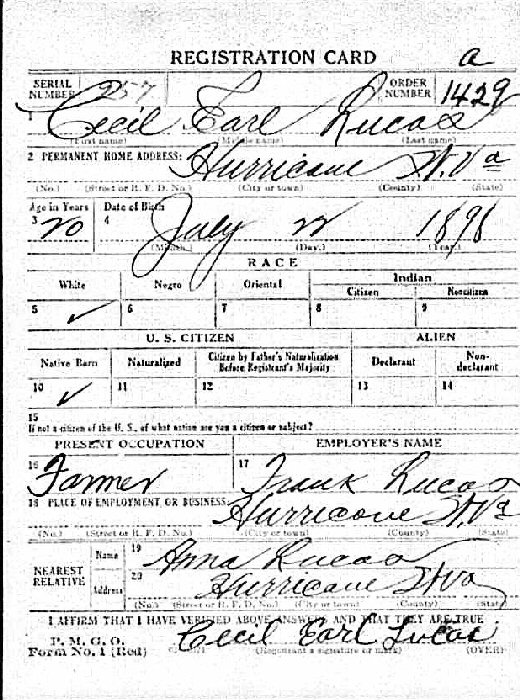 REGISTRATION CARD a
SERIAL NUMBER 257 ORDER NUMBER 1429
1 Cecil Earl Lucas
(First name) (Middle name) (Last name)
2 PERMANENT HOME ADDRESS: Hurricane W. Va
(No.) (Street or R. F. D. No.) (City or town) (County) (State)
Age in Years Date of Birth
3 20 4 July 22 1898
(Month.) (Day.) (Year.)
RACE
White Negro Oriental Indian
Citizen Noncitizen
5 ✓ 6 7 8 9
U. S. CITIZEN ALIEN
Native Born Naturalized Citizen by Father's Naturalization Before Registrant's Majority Declarant Non-declarant
10 ✓ 11 12 13 14
15
If not a citizen of the U. S., of what nation are you a citizen or subject?
PRESENT OCCUPATION EMPLOYER'S NAME
16 Farmer 17 Frank Lucas
18 PLACE OF EMPLOYMENT OR BUSINESS: Hurricane W. Va
(No.) (Street or R. F. D. No.) (City or town) (County) (State)
NEAREST RELATIVE Name 19 Anna Lucas
Address 20 Hurricane W Va
(No.) (Street or R. F. D. No.) (City or town) (County) (State)
I AFFIRM THAT I HAVE VERIFIED ABOVE ANSWERS AND THAT THEY ARE TRUE
P. M. G. O.
Form No. 1 (Red) Cecil Earl Lucas
(Registrant's signature or mark) (OVER)